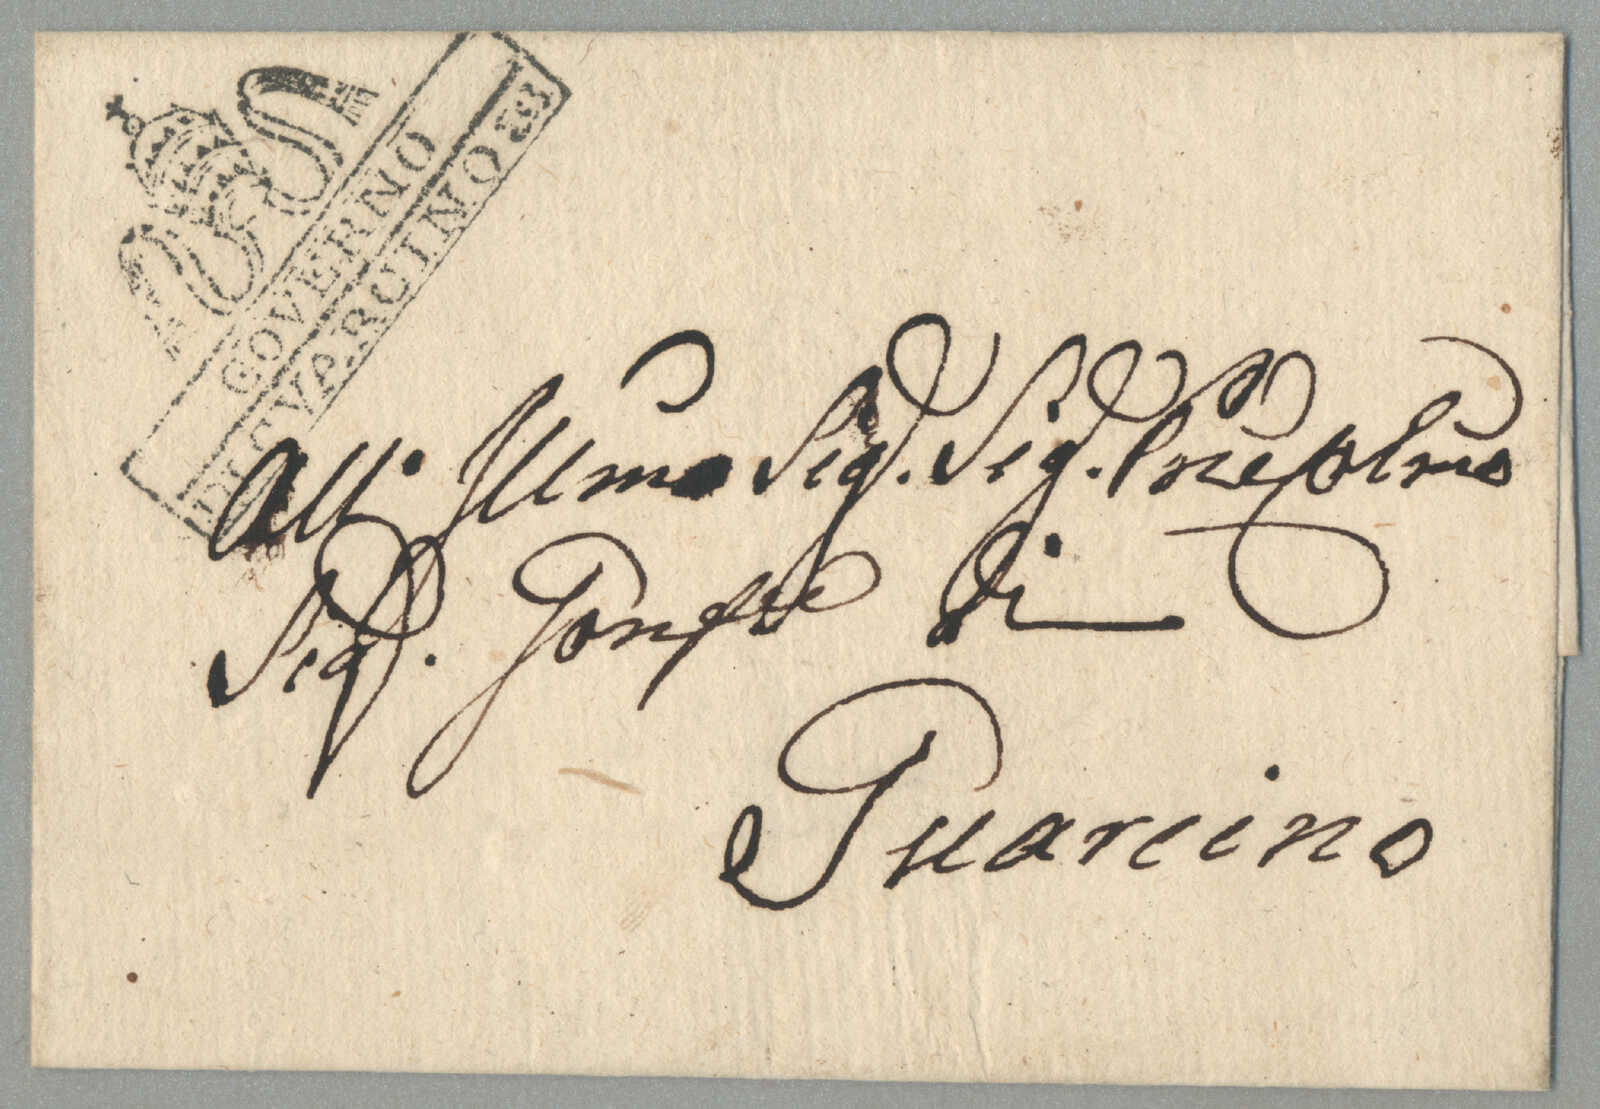 GOVERNO
DI GVARCINO
All' Illmo Sig. Sig. Prne Colmo
Sig. Gonfre di
Guarcino